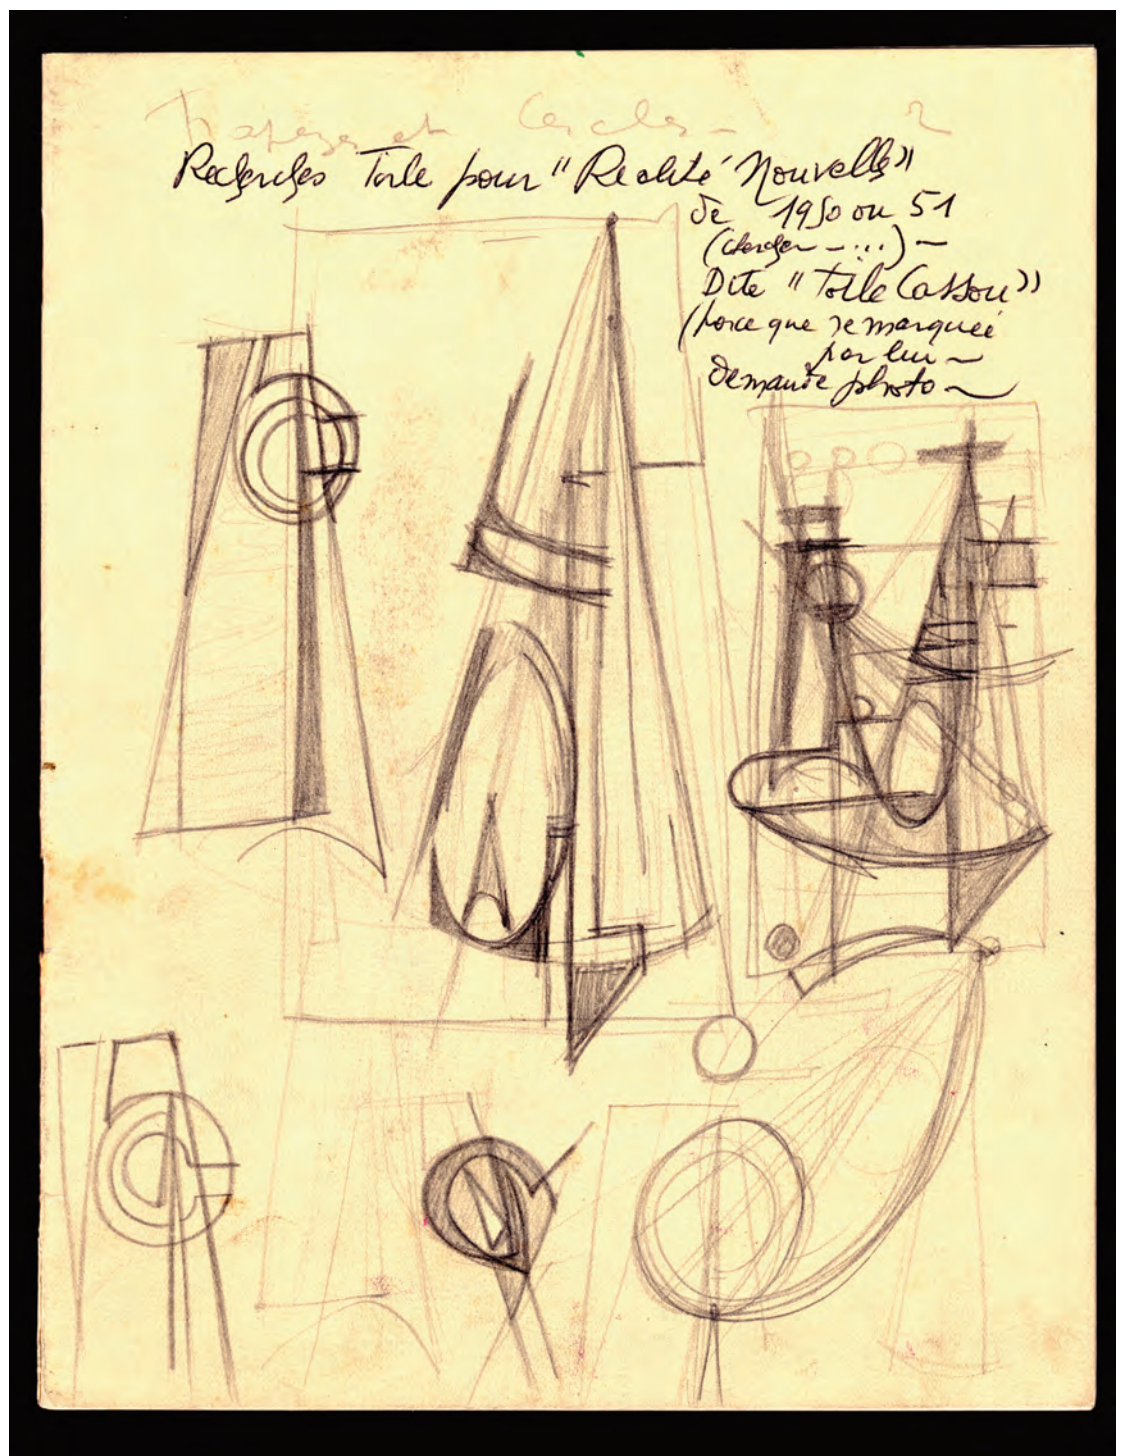 Trapezes et Cercles -
Recherches Toile pour "Realité Nouvelle"
de 1950 ou 51
(charger - ...) -
Dite "Toile Cassou"
(parce que remarquée
par lui -
demande photo -